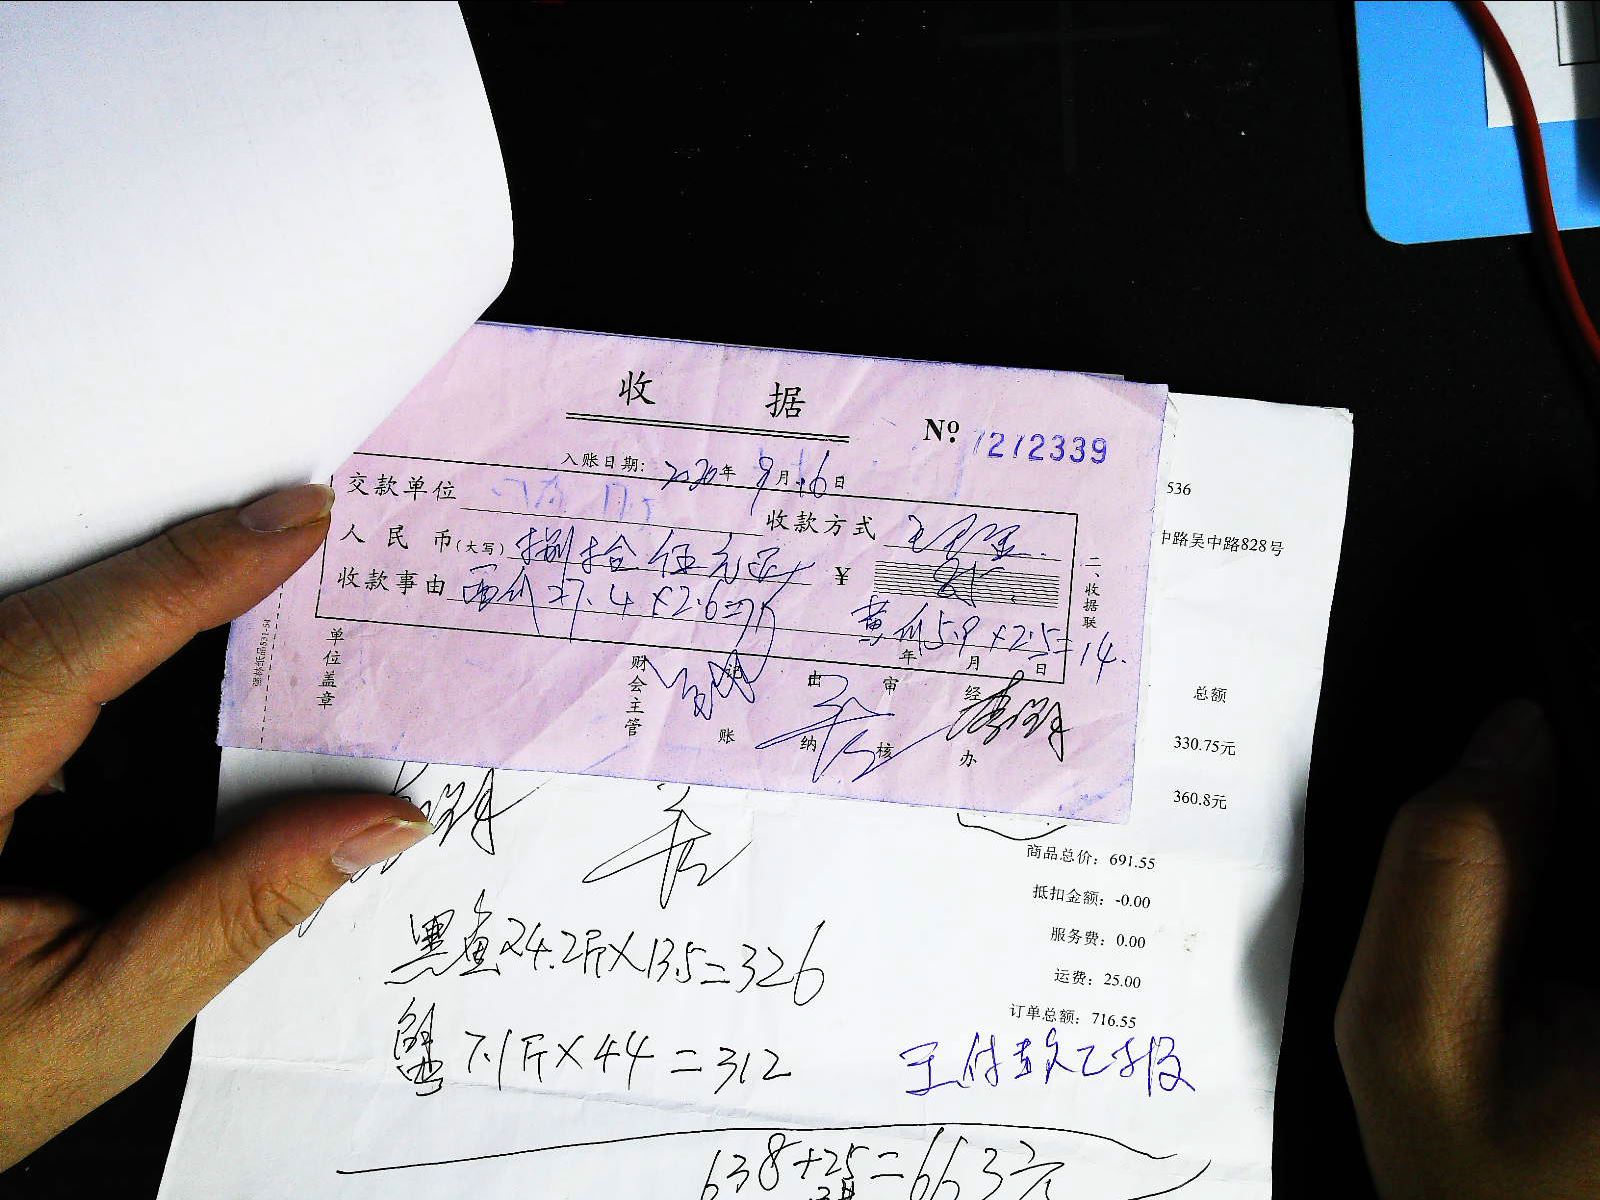 收 据
Nº 1212339
入账日期: 2020年 9月16日
交款单位
收款方式
人民币(大写) 捌拾伍元正 ¥
收款事由 西瓜27.4×2.6=71 黄瓜5.9×2.5=14.
年 月 日
二、收据联
单位盖章
财会主管
记账
出纳
审核
经办
536
中路吴中路828号
总额
330.75元
360.8元
商品总价: 691.55
抵扣金额: -0.00
服务费: 0.00
运费: 25.00
订单总额: 716.55
黑鱼24.2斤×13.5=326
蟹 7.1斤×44=312
638+25=663元